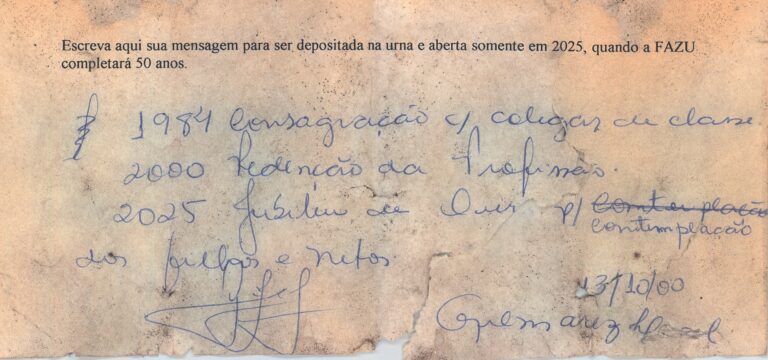 Escreva aqui sua mensagem para ser depositada na urna e aberta somente em 2025, quando a FAZU
completará 50 anos.
1984 Consagração c/ colegas de classe.
2000 Redenção da Profissão.
2025 Jubileu de Ouro p/ Contemplação
contemplação
dos filhos e netos.
13/10/00